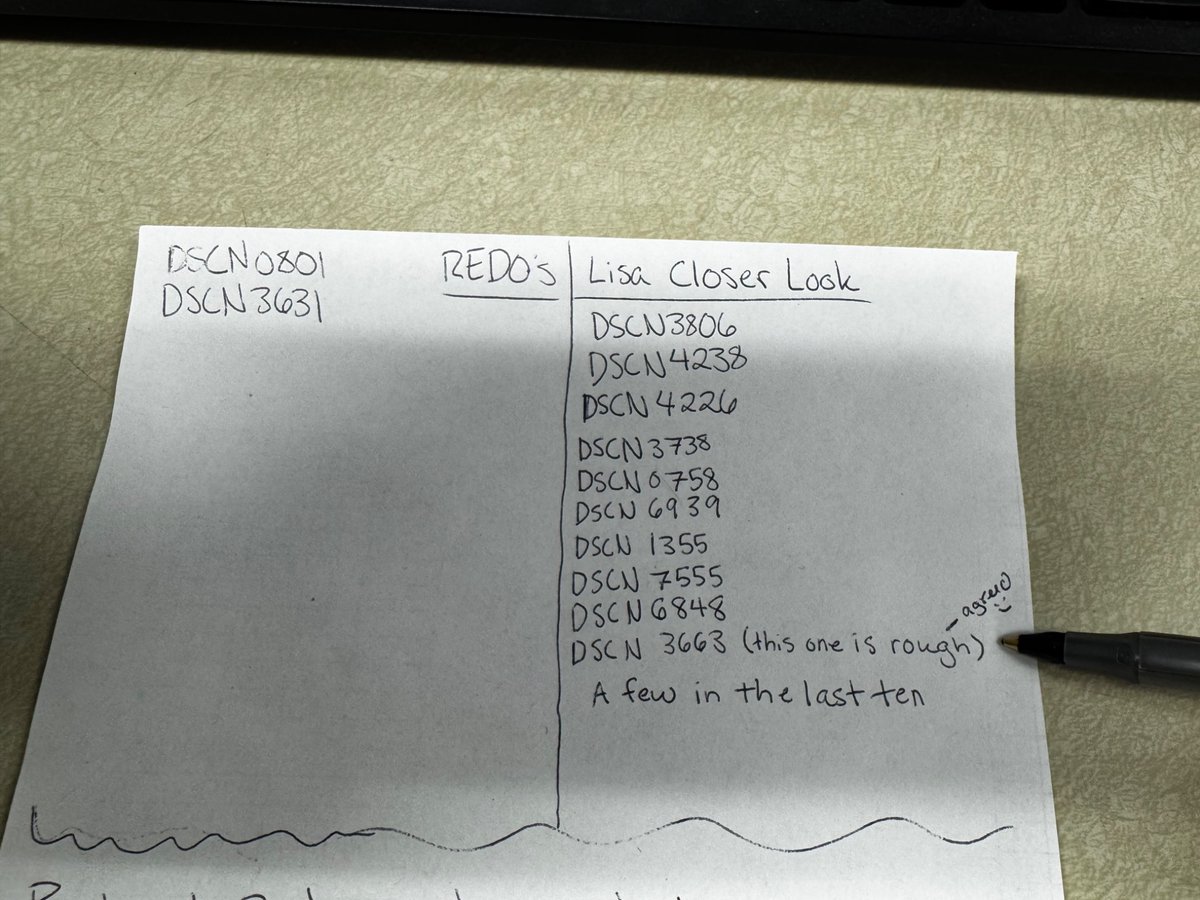 DSCN0801
DSCN3631
REDO's
Lisa Closer Look
DSCN3806
DSCN4238
DSCN 4226
DSCN3738
DSCN 0758
DSCN 6939
DSCN 1355
DSCN 7555
DSCN 6848
DSCN 3663 (this one is rough)
- agree
A few in the last ten